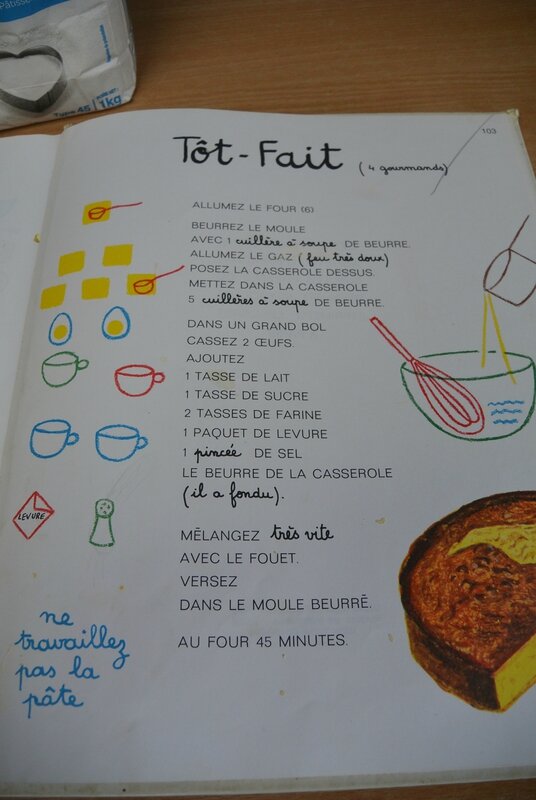 Pâtisse
Type 45
1kg
103
Tôt-Fait (4 gourmands)
ALLUMEZ LE FOUR (6)
BEURREZ LE MOULE
AVEC 1 cuillère à soupe DE BEURRE.
ALLUMEZ LE GAZ (feu très doux)
POSEZ LA CASSEROLE DESSUS.
METTEZ DANS LA CASSEROLE
5 cuillères à soupe DE BEURRE.
DANS UN GRAND BOL
CASSEZ 2 ŒUFS.
AJOUTEZ
1 TASSE DE LAIT
1 TASSE DE SUCRE
2 TASSES DE FARINE
1 PAQUET DE LEVURE
1 pincée DE SEL
LE BEURRE DE LA CASSEROLE
(il a fondu).
LEVURE
MÊLANGEZ très vite
AVEC LE FOUET.
VERSEZ
DANS LE MOULE BEURRÉ.
AU FOUR 45 MINUTES.
ne
travaillez
pas la
pâte